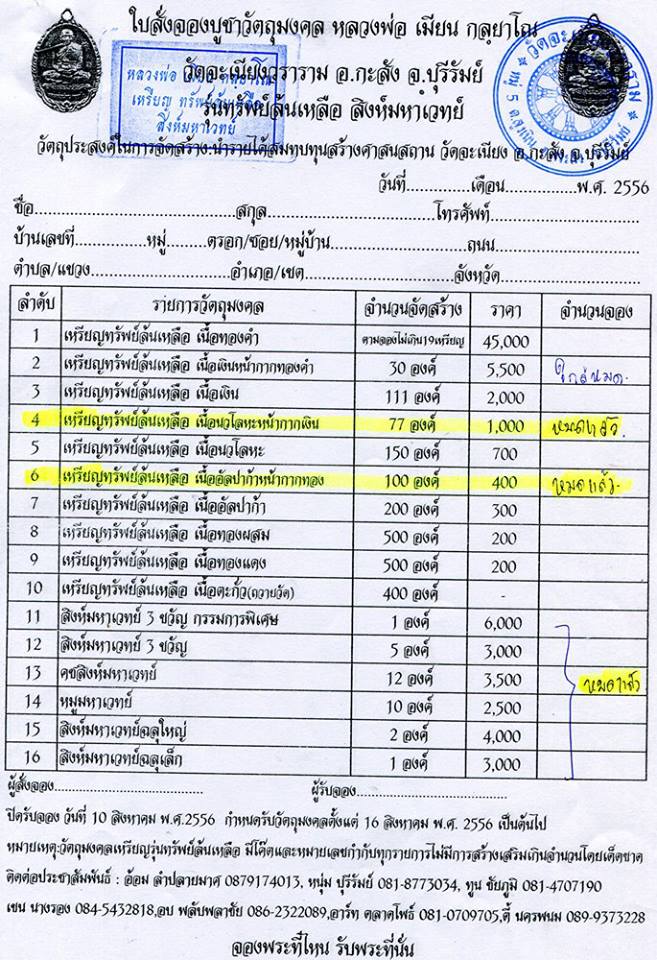 ใบสั่งจองบูชาวัตถุมงคล หลวงพ่อ เมียน กลฺยาโณ
วัดจะเนียงวราราม อ.กะสัง จ.บุรีรัมย์
รุ่นทรัพย์ล้นเหลือ สิงห์มหาเวทย์
หลวงพ่อ
เหรียญ ทรัพย์ล้นเหลือ
สิงห์มหาเวทย์
วัตถุประสงค์ในการจัดสร้าง:นำรายได้สมทบทุนสร้างศาสนสถาน วัดจะเนียง อ.กะสัง จ.บุรีรัมย์
วันที่...............เดือน..................พ.ศ. 2556
ชื่อ..................................................สกุล..................................................โทรศัพท์.....................................
บ้านเลขที่..................หมู่..........ตรอก/ซอย/หมู่บ้าน..................................ถนน...................................
ตำบล/แขวง...................................อำเภอ/เขต.....................................จังหวัด...................................
ลำดับ รายการวัตถุมงคล จำนวนจัดสร้าง ราคา จำนวนจอง
1 เหรียญทรัพย์ล้นเหลือ เนื้อทองคำ ตามจองไม่เกิน19เหรียญ 45,000
2 เหรียญทรัพย์ล้นเหลือ เนื้อเงินหน้ากากทองคำ 30 องค์ 5,500 ใกล้หมด
3 เหรียญทรัพย์ล้นเหลือ เนื้อเงิน 111 องค์ 2,000
4 เหรียญทรัพย์ล้นเหลือ เนื้อนวโลหะหน้ากากเงิน 77 องค์ 1,000 หมดแล้ว
5 เหรียญทรัพย์ล้นเหลือ เนื้อนวโลหะ 150 องค์ 700
6 เหรียญทรัพย์ล้นเหลือ เนื้ออัลปาก้าหน้ากากทอง 100 องค์ 400 หมดแล้ว
7 เหรียญทรัพย์ล้นเหลือ เนื้ออัลปาก้า 200 องค์ 300
8 เหรียญทรัพย์ล้นเหลือ เนื้อทองผสม 500 องค์ 200
9 เหรียญทรัพย์ล้นเหลือ เนื้อทองแดง 500 องค์ 200
10 เหรียญทรัพย์ล้นเหลือ เนื้อตะกั่ว(ถวายวัด) 400 องค์ -
11 สิงห์มหาเวทย์ 3 ขวัญ กรรมการพิเศษ 1 องค์ 6,000
12 สิงห์มหาเวทย์ 3 ขวัญ 5 องค์ 3,000
13 คชสิงห์มหาเวทย์ 12 องค์ 3,500 หมดแล้ว
14 หมูมหาเวทย์ 10 องค์ 2,500
15 สิงห์มหาเวทย์ฉลุใหญ่ 2 องค์ 4,000
16 สิงห์มหาเวทย์ฉลุเล็ก 1 องค์ 3,000
ผู้สั่งจอง..................................... ผู้รับจอง......................................
ปิดรับจอง วันที่ 10 สิงหาคม พ.ศ.2556 กำหนดรับวัตถุมงคลตั้งแต่ 16 สิงหาคม พ.ศ. 2556 เป็นต้นไป
หมายเหตุ:วัตถุมงคลเหรียญรุ่นทรัพย์ล้นเหลือ มีโค๊ตและหมายเลขกำกับทุกรายการไม่มีการสร้างเสริมเกินจำนวนโดยเด็ดขาด
ติดต่อประชาสัมพันธ์ : อ้อม ลำปลายมาศ 0879174013, หนุ่ม บุรีรัมย์ 081-8773034, ทูน ชัยภูมิ 081-4707190
เขน นางรอง 084-5432818,อบ พลับพลาชัย 086-2322089,อาร์ท ตลาดโพธิ์ 081-0709705,ตี้ นครพนม 089-9373228
จองพระที่ไหน รับพระที่นั่น